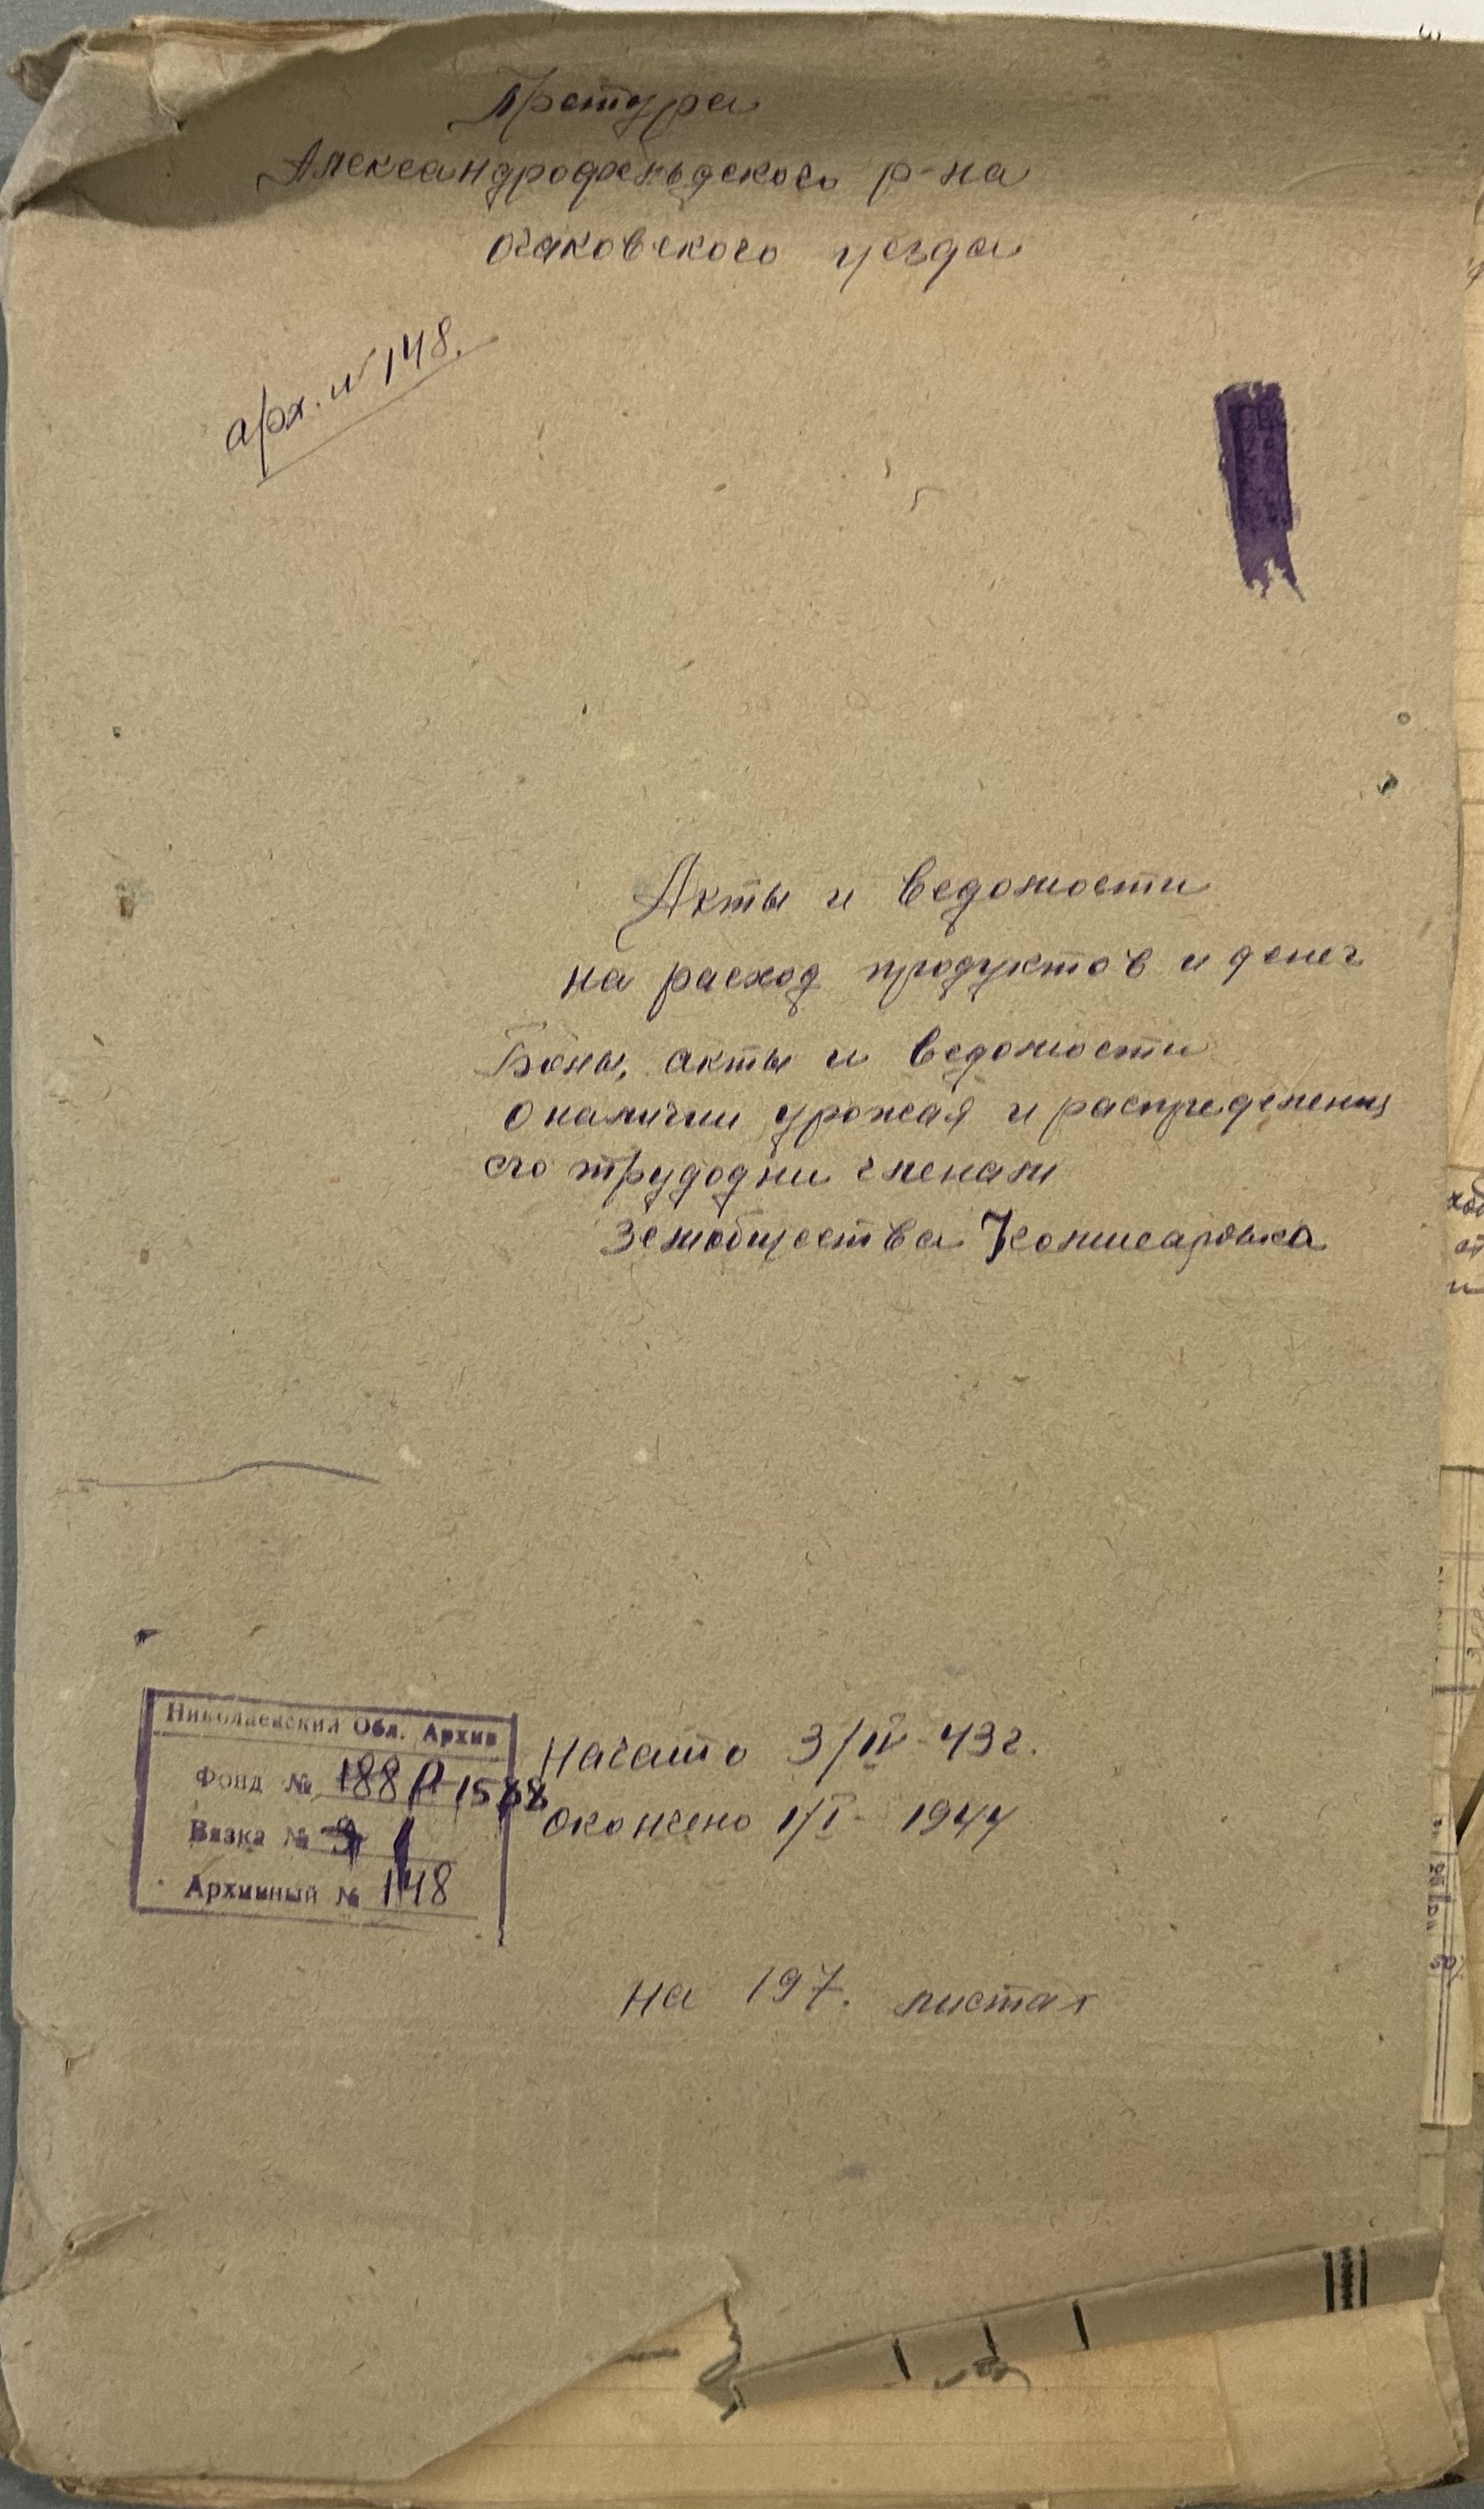 Претура
Александрофельдского р-на
Очаковского уезда
арх. № 148.
Акты и ведомости
на расход продуктов и денег
Боны, акты и ведомости
о наличии урожая и распределения
его трудодни членам
Земобщества Комисаровка
Николаевский Обл. Архив
Фонд № 188 Р-1588
Вязка № 1
Архивный № 148
Начато 3/IV-43г.
Окончено 1/I- 1944
на 197. листах